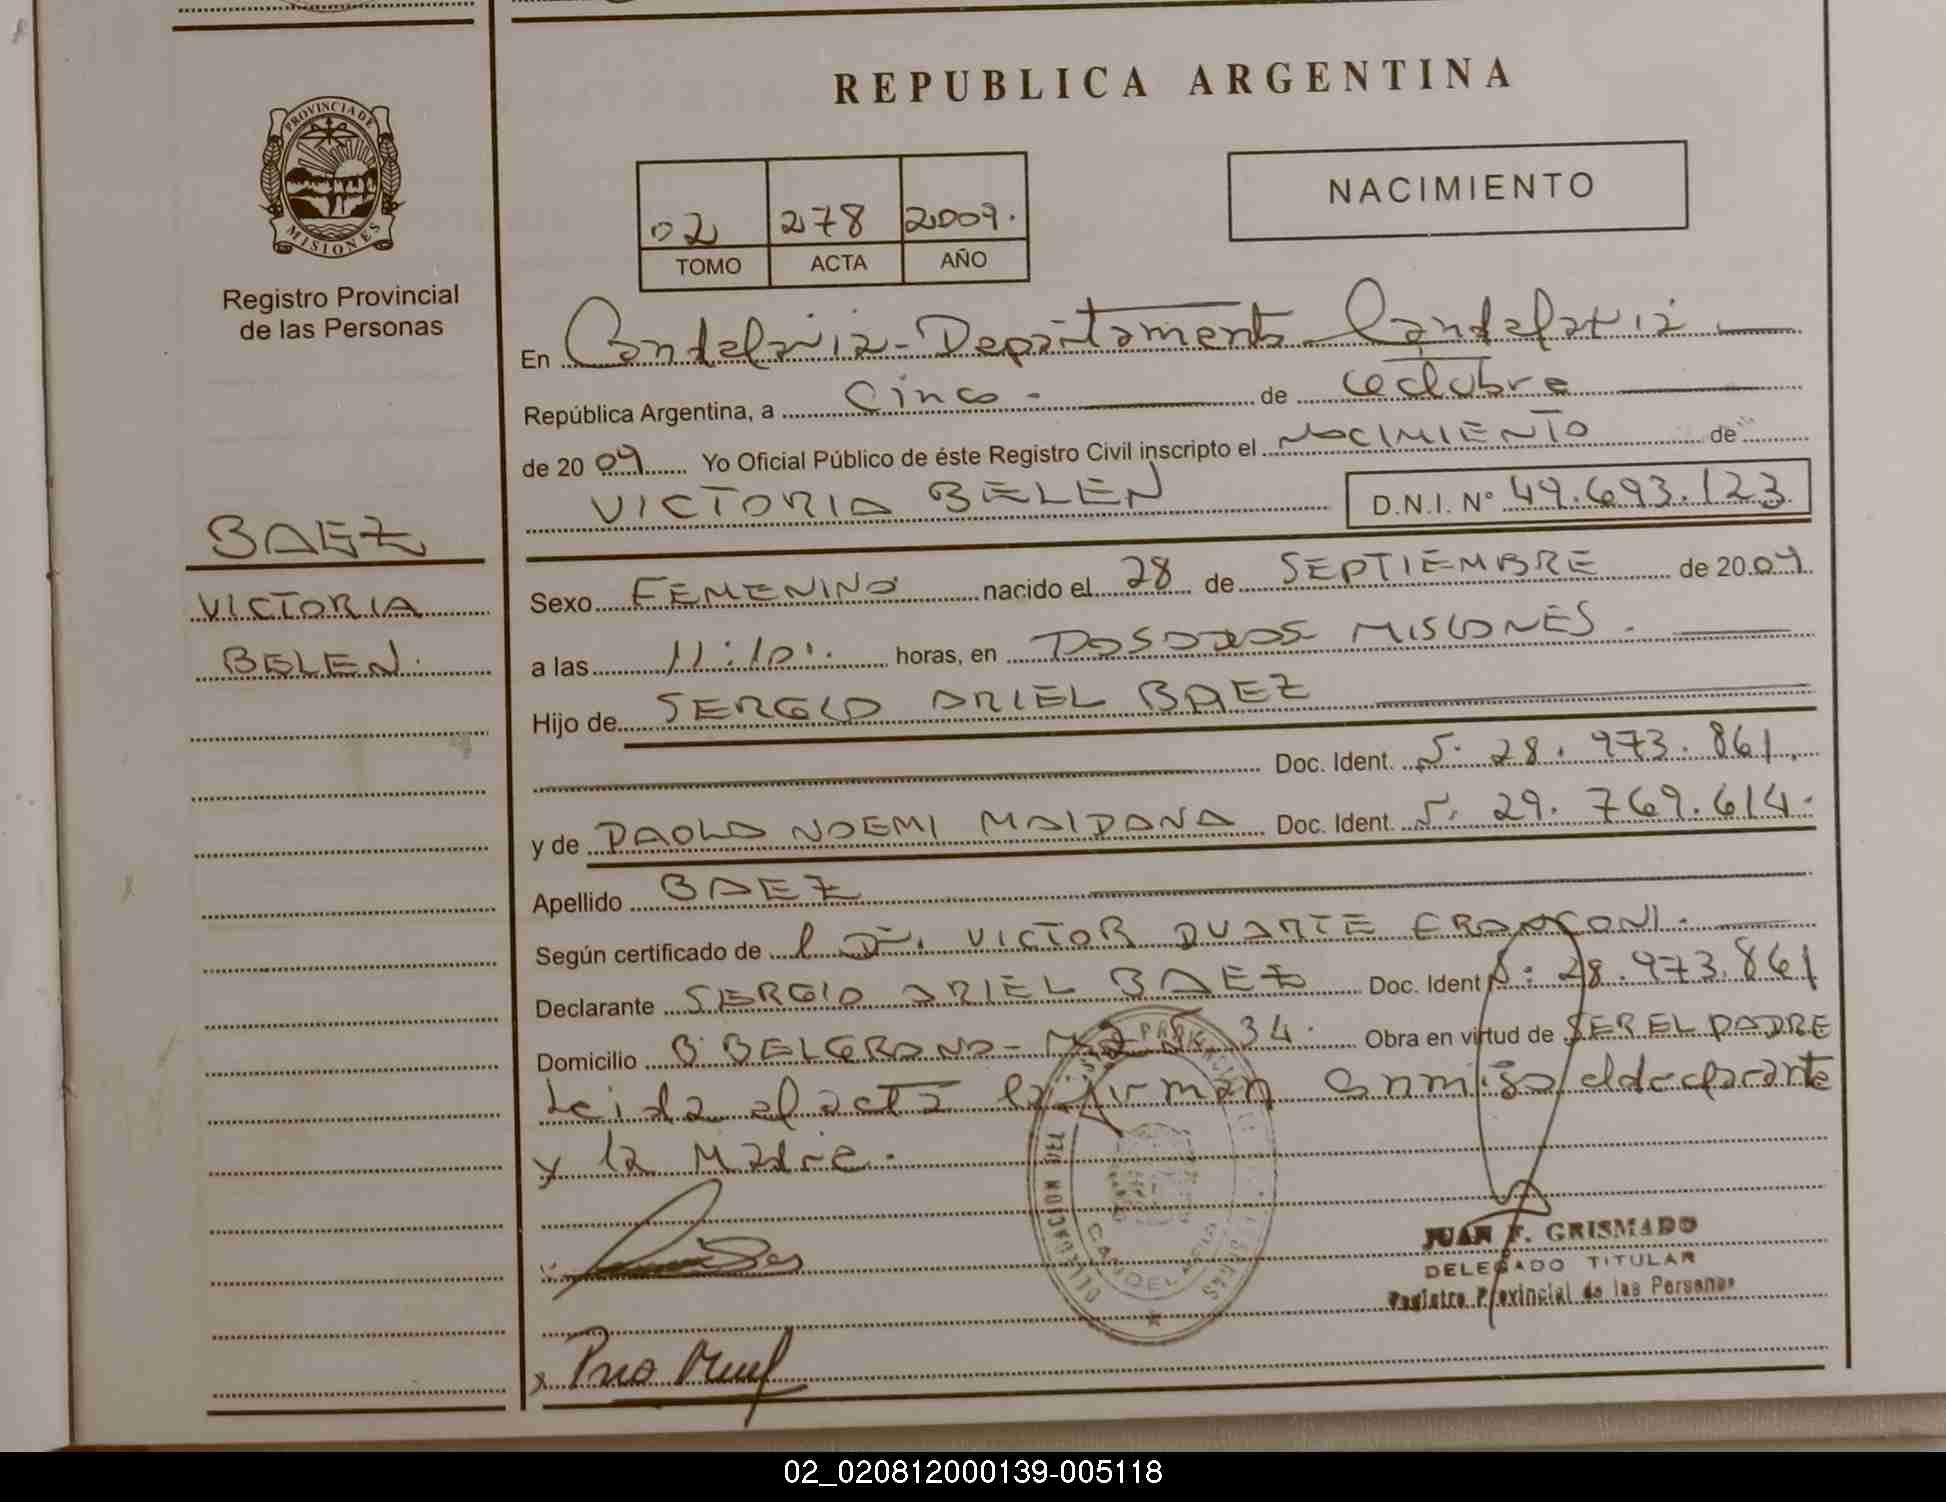 REPUBLICA ARGENTINA
PROVINCIA DE
MISIONES
Registro Provincial
de las Personas
NACIMIENTO
02 278 2009.
TOMO ACTA AÑO
En Candelaria - Departamento Candelaria
República Argentina, a Cinco - de octubre
de 2009 Yo Oficial Público de éste Registro Civil inscripto el NACIMIENTO de
VICTORIA BELEN D.N.I. N° 49.693.123
BAEZ
VICTORIA
BELEN.
Sexo FEMENINO nacido el 28 de SEPTIEMBRE de 2009
a las 11:10'. horas, en POSADAS MISIONES.
Hijo de SERGIO ARIEL BAEZ
Doc. Ident. N· 28.973.861
y de PAOLA NOEMI MAIDANA Doc. Ident. N. 29.769.614.
Apellido BAEZ
Según certificado de l Dr. VICTOR DUARTE FRANCONI.
Declarante SERGIO ARIEL BAEZ Doc. Ident N: 28.973.861
Domicilio B. BELGRANO - 34. Obra en virtud de SER EL PADRE
Leida el acta la firman conmigo el declarante
y la Madre.
DELEGACION
CANDELARIA
JUAN F. GRISMADO
DELEGADO TITULAR
Registro Provincial de las Personas
02_020812000139-005118